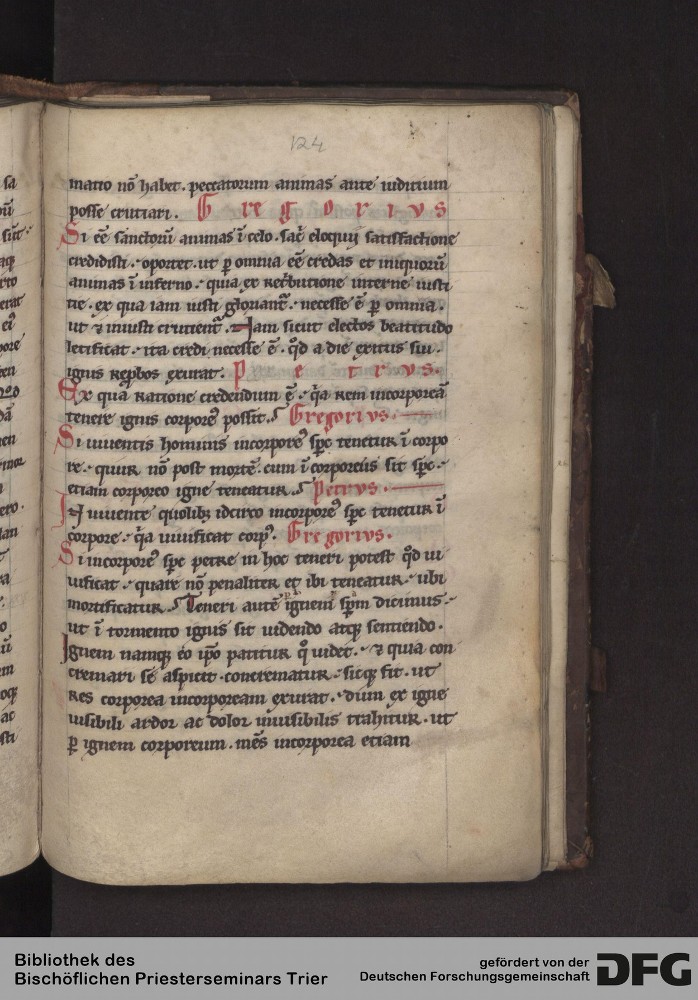 124
matio nō habet. peccatorum animas ante iuditium
posse cruciari. Gregorivs
Si eē sanctorū animas ī celo. sac̄ eloquii satisfactione
credidisti. oportet. ut ꝑ omnia eē credas et iniquorū
animas ī inferno. quia ex ret̄butione interne iusti
tie. ex qua iam iusti gloriant᷑. necesse ē ꝑ omnia.
ut ⁊ iniusti crucient᷑. Nam sicut electos beatitudo
letificat. ita credi necesse ē. qd̄ a die exitus sui.
ignis rep̄bos exurat. Petrvs.
Ex qua ratione credendum ē. q̄a rem incorpoream
tenere ignis corporeꝰ possit. Gregorivs.
Si viventis hominis incorporeꝰ sp̄c tenetur ī corpo
re. quur nō post mortē. cum ī corporeus sit sp̄c.
etiam corporeo igne teneatur. Petrvs.
In vivente quolibꝫ idcirco incorporeꝰ sp̄c tenetur ī
corpore. q̄a vivificat corpꝰ. Gregorivs.
Si incorporeꝰ sp̄c petre in hoc teneri potest qd̄ vi
vificat. quare nō penaliter et ibi teneatur. ubi
mortificatur. Teneri autē ꝑ ignem sp̄m dicimus.
ut ī tormento ignis sit videndo atqꝫ sentiendo.
Ignem namqꝫ eo ip̄o patitur q̊ videt. ⁊ quia con
cremari se aspicit. concrematur. sicqꝫ fit. ut
res corporea incorpoream exurat. dum ex igne
visibili ardor ac dolor invisibilis trahitur. ut
ꝑ ignem corporeum. mēs incorporea etiam
Bibliothek des
Bischöflichen Priesterseminars Trier
gefördert von der
Deutschen Forschungsgemeinschaft
DFG